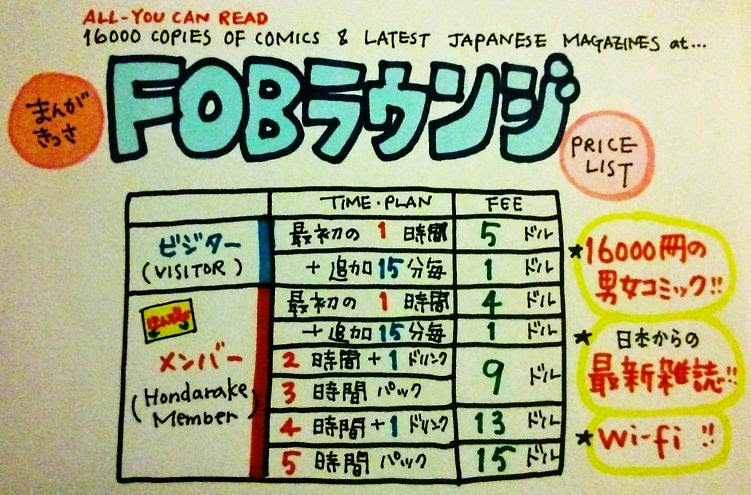 ALL-YOU CAN READ
16000 COPIES OF COMICS & LATEST JAPANESE MAGAZINES at...
まんが
きっさ
FOBラウンジ
PRICE
LIST
TIME・PLAN FEE
ビジター
(VISITOR)
最初の 1 時間 5 ドル
+ 追加 15 分毎 1 ドル
ほんだらけ
メンバー
(Hondarake
Member)
最初の 1 時間 4 ドル
+ 追加 15 分毎 1 ドル
2 時間 + 1 ドリンク
3 時間 パック
9 ドル
4 時間 + 1 ドリンク 13 ドル
5 時間 パック 15 ドル
★16000冊の
男女コミック!!
★ 日本からの
最新雑誌!!
★ Wi-fi !!